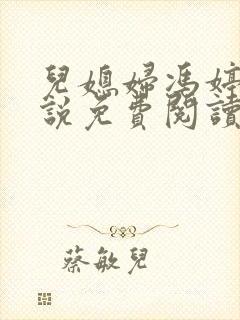 兒媳婦馮婷
說免費閱讀
蔡敏兒